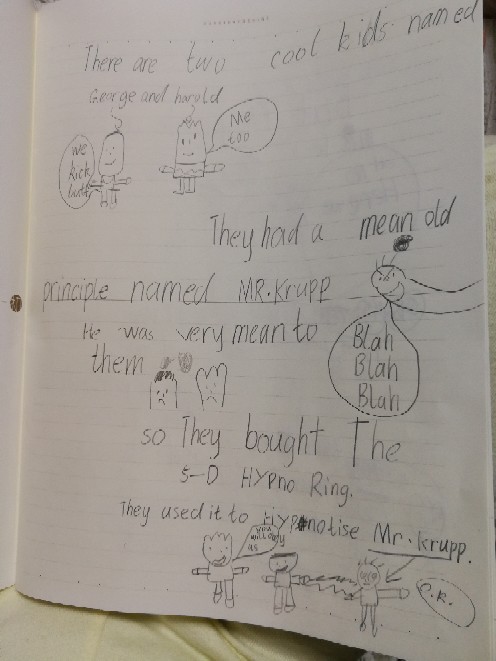 There are two cool kids named
George and harold
We
kick
butt
Me
too
They had a mean old
principle named MR. Krupp
He was very mean to
them
Blah
Blah
Blah
so They bought The
5-D Hypno Ring.
They used it to Hypnotise Mr. Krupp.
you
will obey
us
O.K.